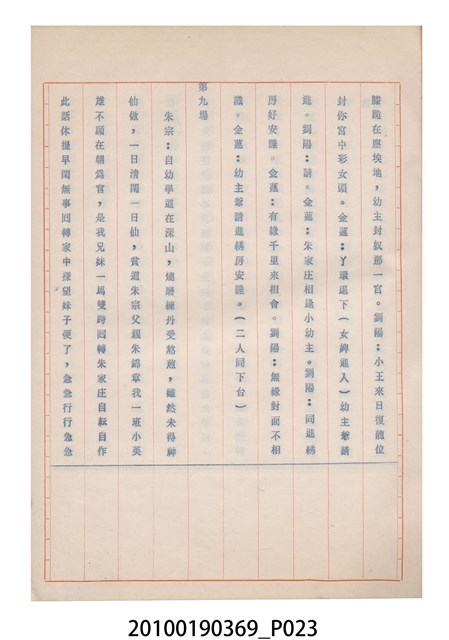 膝跪在塵埃地，幼主封奴那一宮。劉陽：小王來日復龍位
封你宮中彩女頭。金蓮：丫環退下（女婢進入）幼主爺請
進。劉陽：請。金蓮：朱家庄相逢小幼主。劉陽：同進綉
房好安謢。金蓮：有緣千里來相會。劉陽：無緣封面不相
識。金蓮：幼主爺請進綉房安謢。（二人同下台）
第九場
朱宗：自幼學道在深山，燒磨練丹受熬煎，雖然未得神
仙做，一日清閒一日仙，貧道朱宗父親朱錦章我一班小英
雄不願在朝爲官，是我兄妹一馬雙跨囘轉朱家庄自耘自作
此話休提早閒無事囘轉家中探望妹子便了，急急行行急急
20100190369_P023